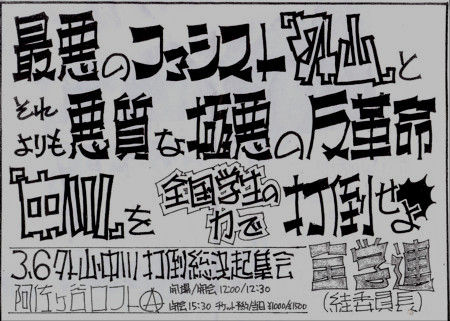 最悪のファシスト「外山」と
それよりも悪質な極悪の反革命
「中川」を全国学生の力で打倒せよ
3.6外山・中川打倒総決起集会
阿佐ヶ谷ロフトA
開場/開会 12:00/12:30
閉会 15:30 チケット予約/当日 ¥1000/¥1500
全学連
(絓委員長)